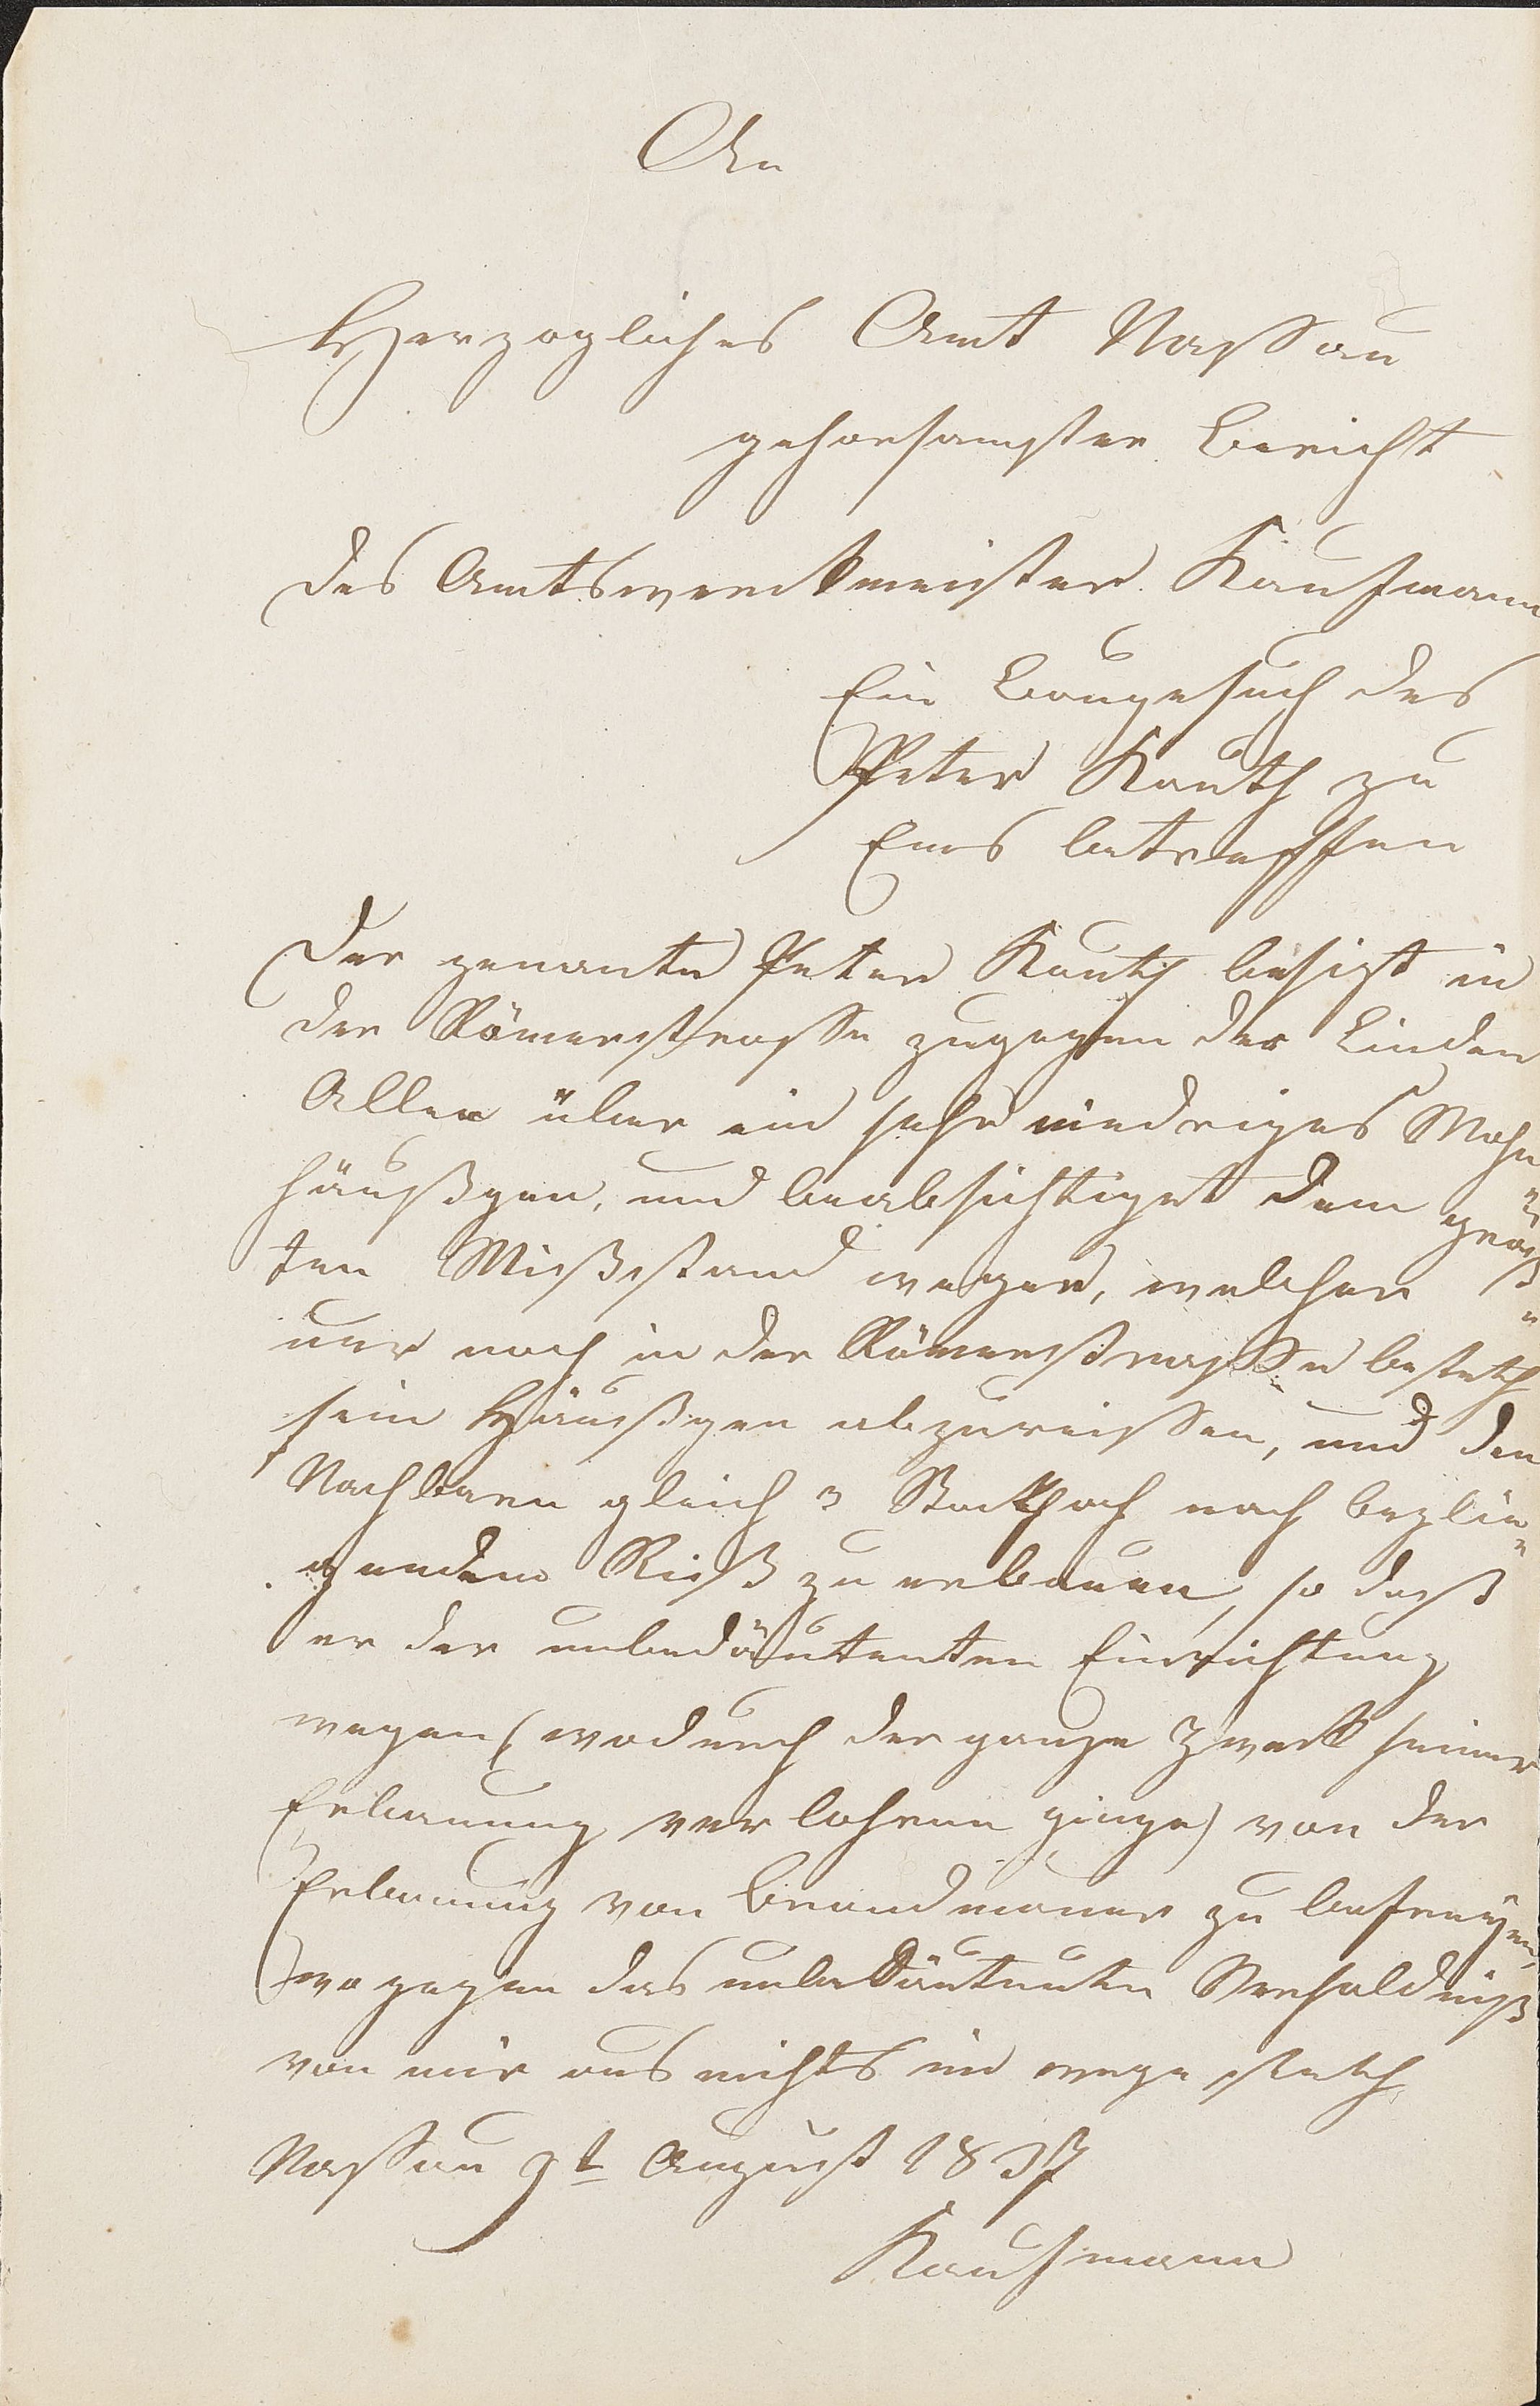 An
Herzogliches Amt Nassau
gehorsamster Bericht
des Amtswerckmeister Kaufmann
Ein Baugesuch des
Peter Kauth zu
Ems betreffen
Der genante Peter Kauth besizt in
der Römerstrasse zugegen der Linden
Allee über ein sehr niedriges Wohn
häußgen, und beabsichtiget dem größ
ten Mießstand wegen, welcher
nur noch in der Römerstrasse besteth
sein Häußgen abzureissen, und den
Nachbaren gleich 3 Stockhoch nach beylie„
genden Rieß zu erbauen, so daß
er der unbedäutenten Einrichtung
wegen (wodurch der ganze Zweck seiner
Erbauung verlohren ginge) von der
Erbauung von Brandmauer zu befreyen,
wogegen das unbedäutente Verhaldniß
von mir aus nichts im wege steth
Nassau 9t August 1837
Kaufmann